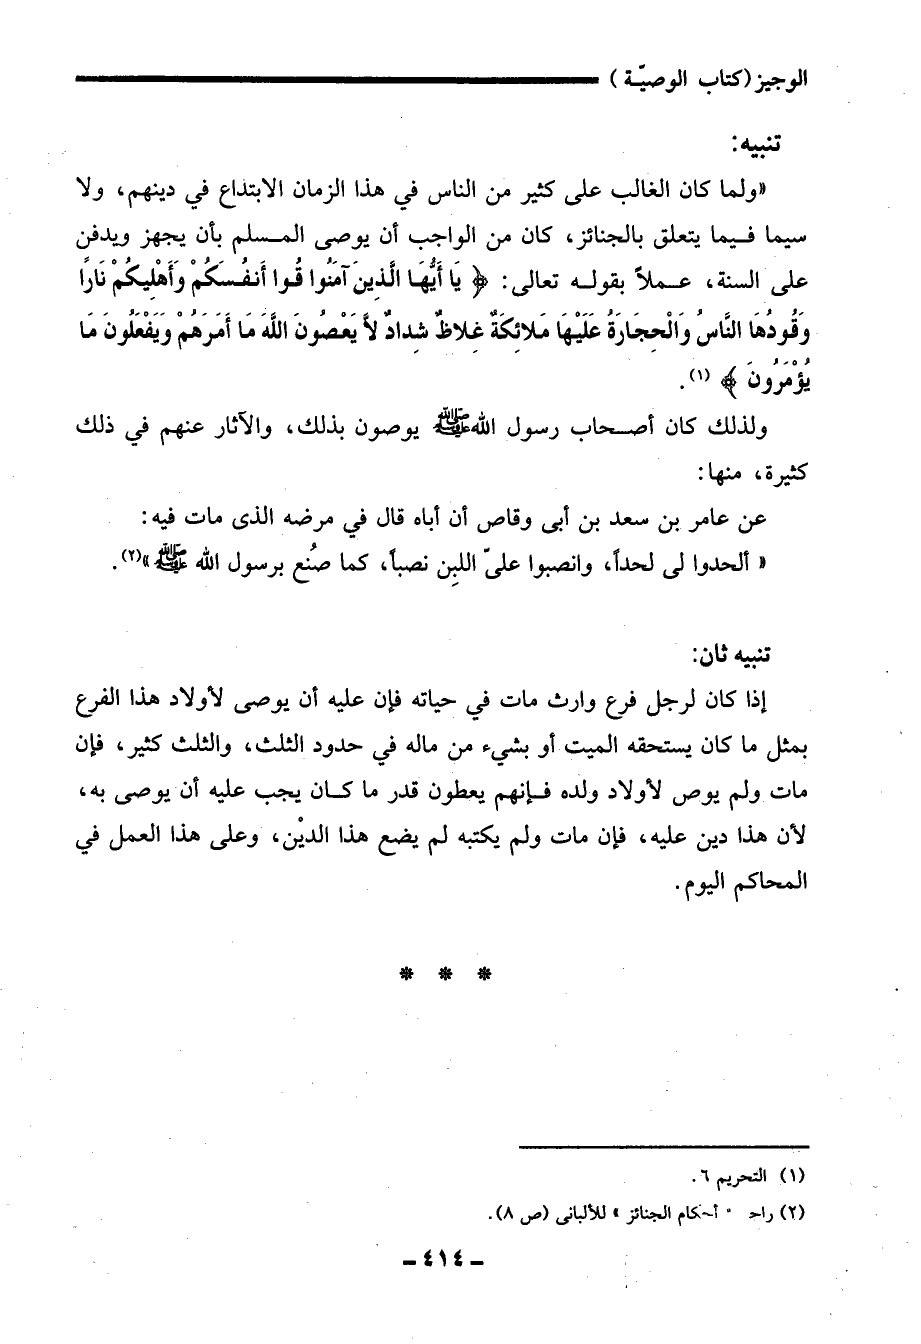 الوجيز (كتاب الوصيّة)
تنبيه:
«ولما كان الغالب على كثير من الناس في هذا الزمان الابتداع في دينهم، ولا
سيما فيما يتعلق بالجنائز، كان من الواجب أن يوصى المسلم بأن يجهز ويدفن
على السنة، عملاً بقوله تعالى: ﴿ يَا أَيُّهَا الَّذِينَ آمَنُوا قُوا أَنفُسَكُمْ وَأَهْلِيكُمْ نَارًا
وَقُودُهَا النَّاسُ وَالْحِجَارَةُ عَلَيْهَا مَلائِكَةٌ غِلاظٌ شِدادٌ لاَّ يَعْصُونَ اللَّهَ مَا أَمَرَهُمْ وَيَفْعَلُونَ مَا
يُؤْمَرُونَ ﴾ (١).
ولذلك كان أصحاب رسول الله ﷺ يوصون بذلك، والآثار عنهم في ذلك
كثيرة، منها:
عن عامر بن سعد بن أبى وقاص أن أباه قال في مرضه الذى مات فيه:
« ألحدوا لى لحداً، وانصبوا علىّ اللبِن نصباً، كما صُنع برسول الله ﷺ »(٢).
تنبيه ثان:
إذا كان لرجل فرع وارث مات في حياته فإن عليه أن يوصى لأولاد هذا الفرع
بمثل ما كان يستحقه الميت أو بشيء من ماله في حدود الثلث، والثلث كثير، فإن
مات ولم يوص لأولاد ولده فإنهم يعطون قدر ما كان يجب عليه أن يوصى به،
لأن هذا دين عليه، فإن مات ولم يكتبه لم يضع هذا الديْن، وعلى هذا العمل في
المحاكم اليوم.
* * *
(١) التحريم ٦.
(٢) راجـ " أحكام الجنائز » للألبانى (ص ٨).
- ٤١٤ -